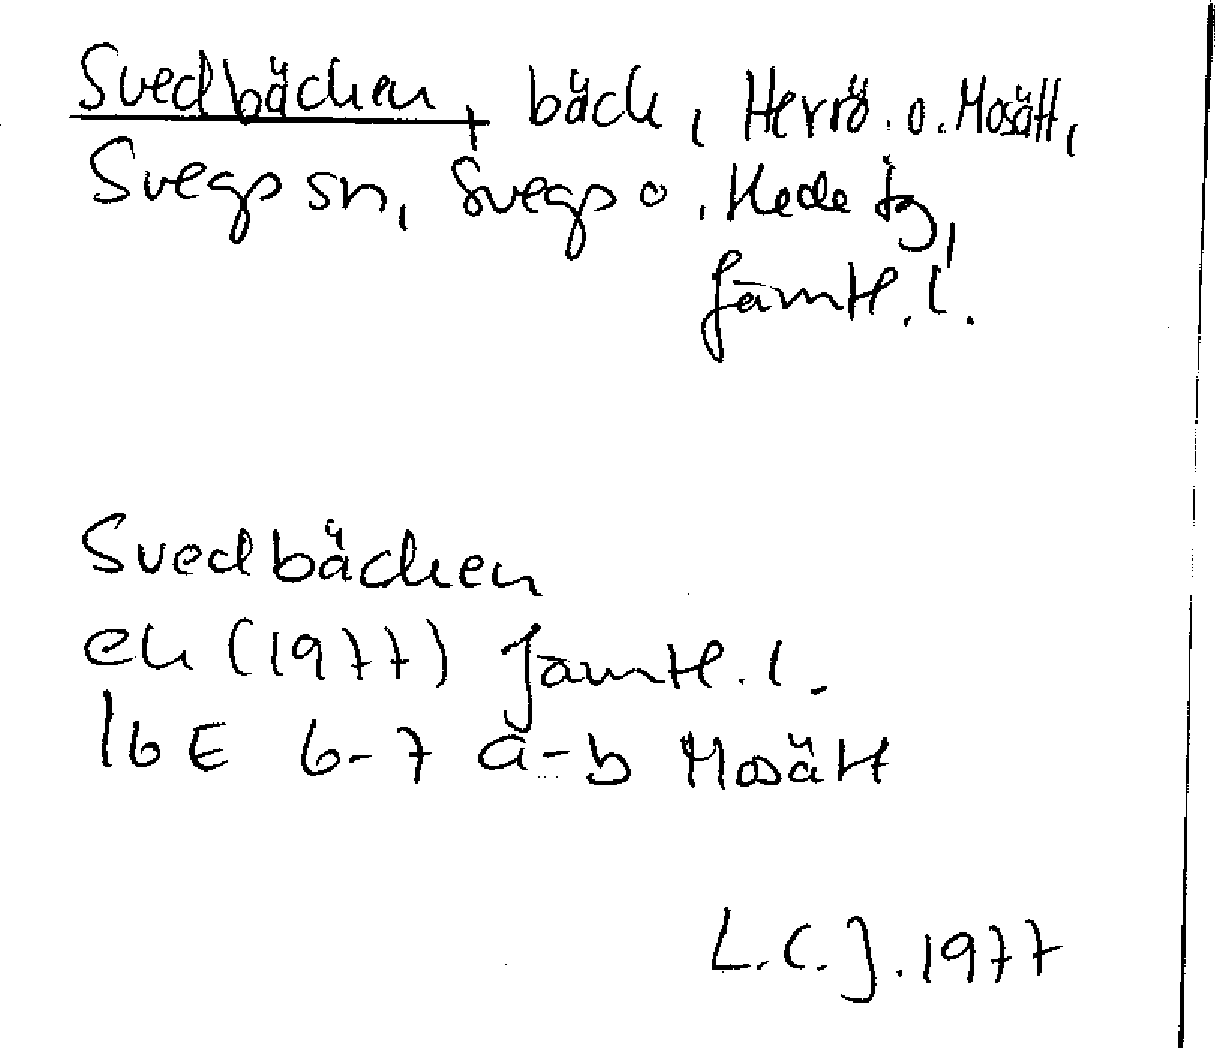 Svedbäcken, bäck, Herrö. o. Mosätt,
Svegs sn, Svegs o, Hede tg,
Jämtl. l.
Svedbäcken
ek (1977) Jämtl. l.
16 E 6-7 a-b Mosätt
L.C.J. 1977